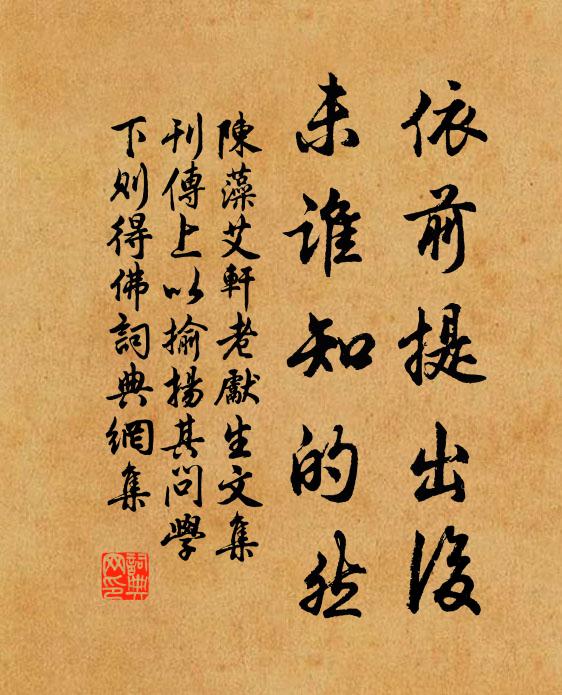 依前提出後
未誰知的然
陳藻艾軒老獻生文集
刊傳上以揄揚其問學
下則得佛詞典網集
詞典
网印